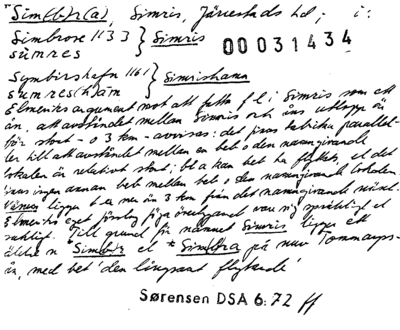 *Sim(b)r(a), Simris, Järrestads hd; i:
Simbrose 1133 } Simris
sūmres
00031434
Symbirshafn 1161 } Simrishamn
sumres(h)am
Elmeviks argument mot att fatta f l i Simris som ett
ån, att avståndet mellan Simris och åns utlopp är
för stort - 3 km - avvisas: det finns talrika parallel-
ler till att avståndet mellan en beb o den namngivande
lokalen är relativt stort; bl a kan beb ha flyttats, el det
finns ingen annan beb mellan beb o den namngivande lokalen.
ligger t ex mer än 3 km från det namngivande näset.
Elmeviks eget förslag föga övertygande vare sig språkligt el
sakligt. Till grund för namnet Simris ligger ett
äldre n *Simbr el *Sim(b)ra på nuv Tommarps-
ån, med bet 'den långsamt flytande'
Sørensen DSA 6:72 ff